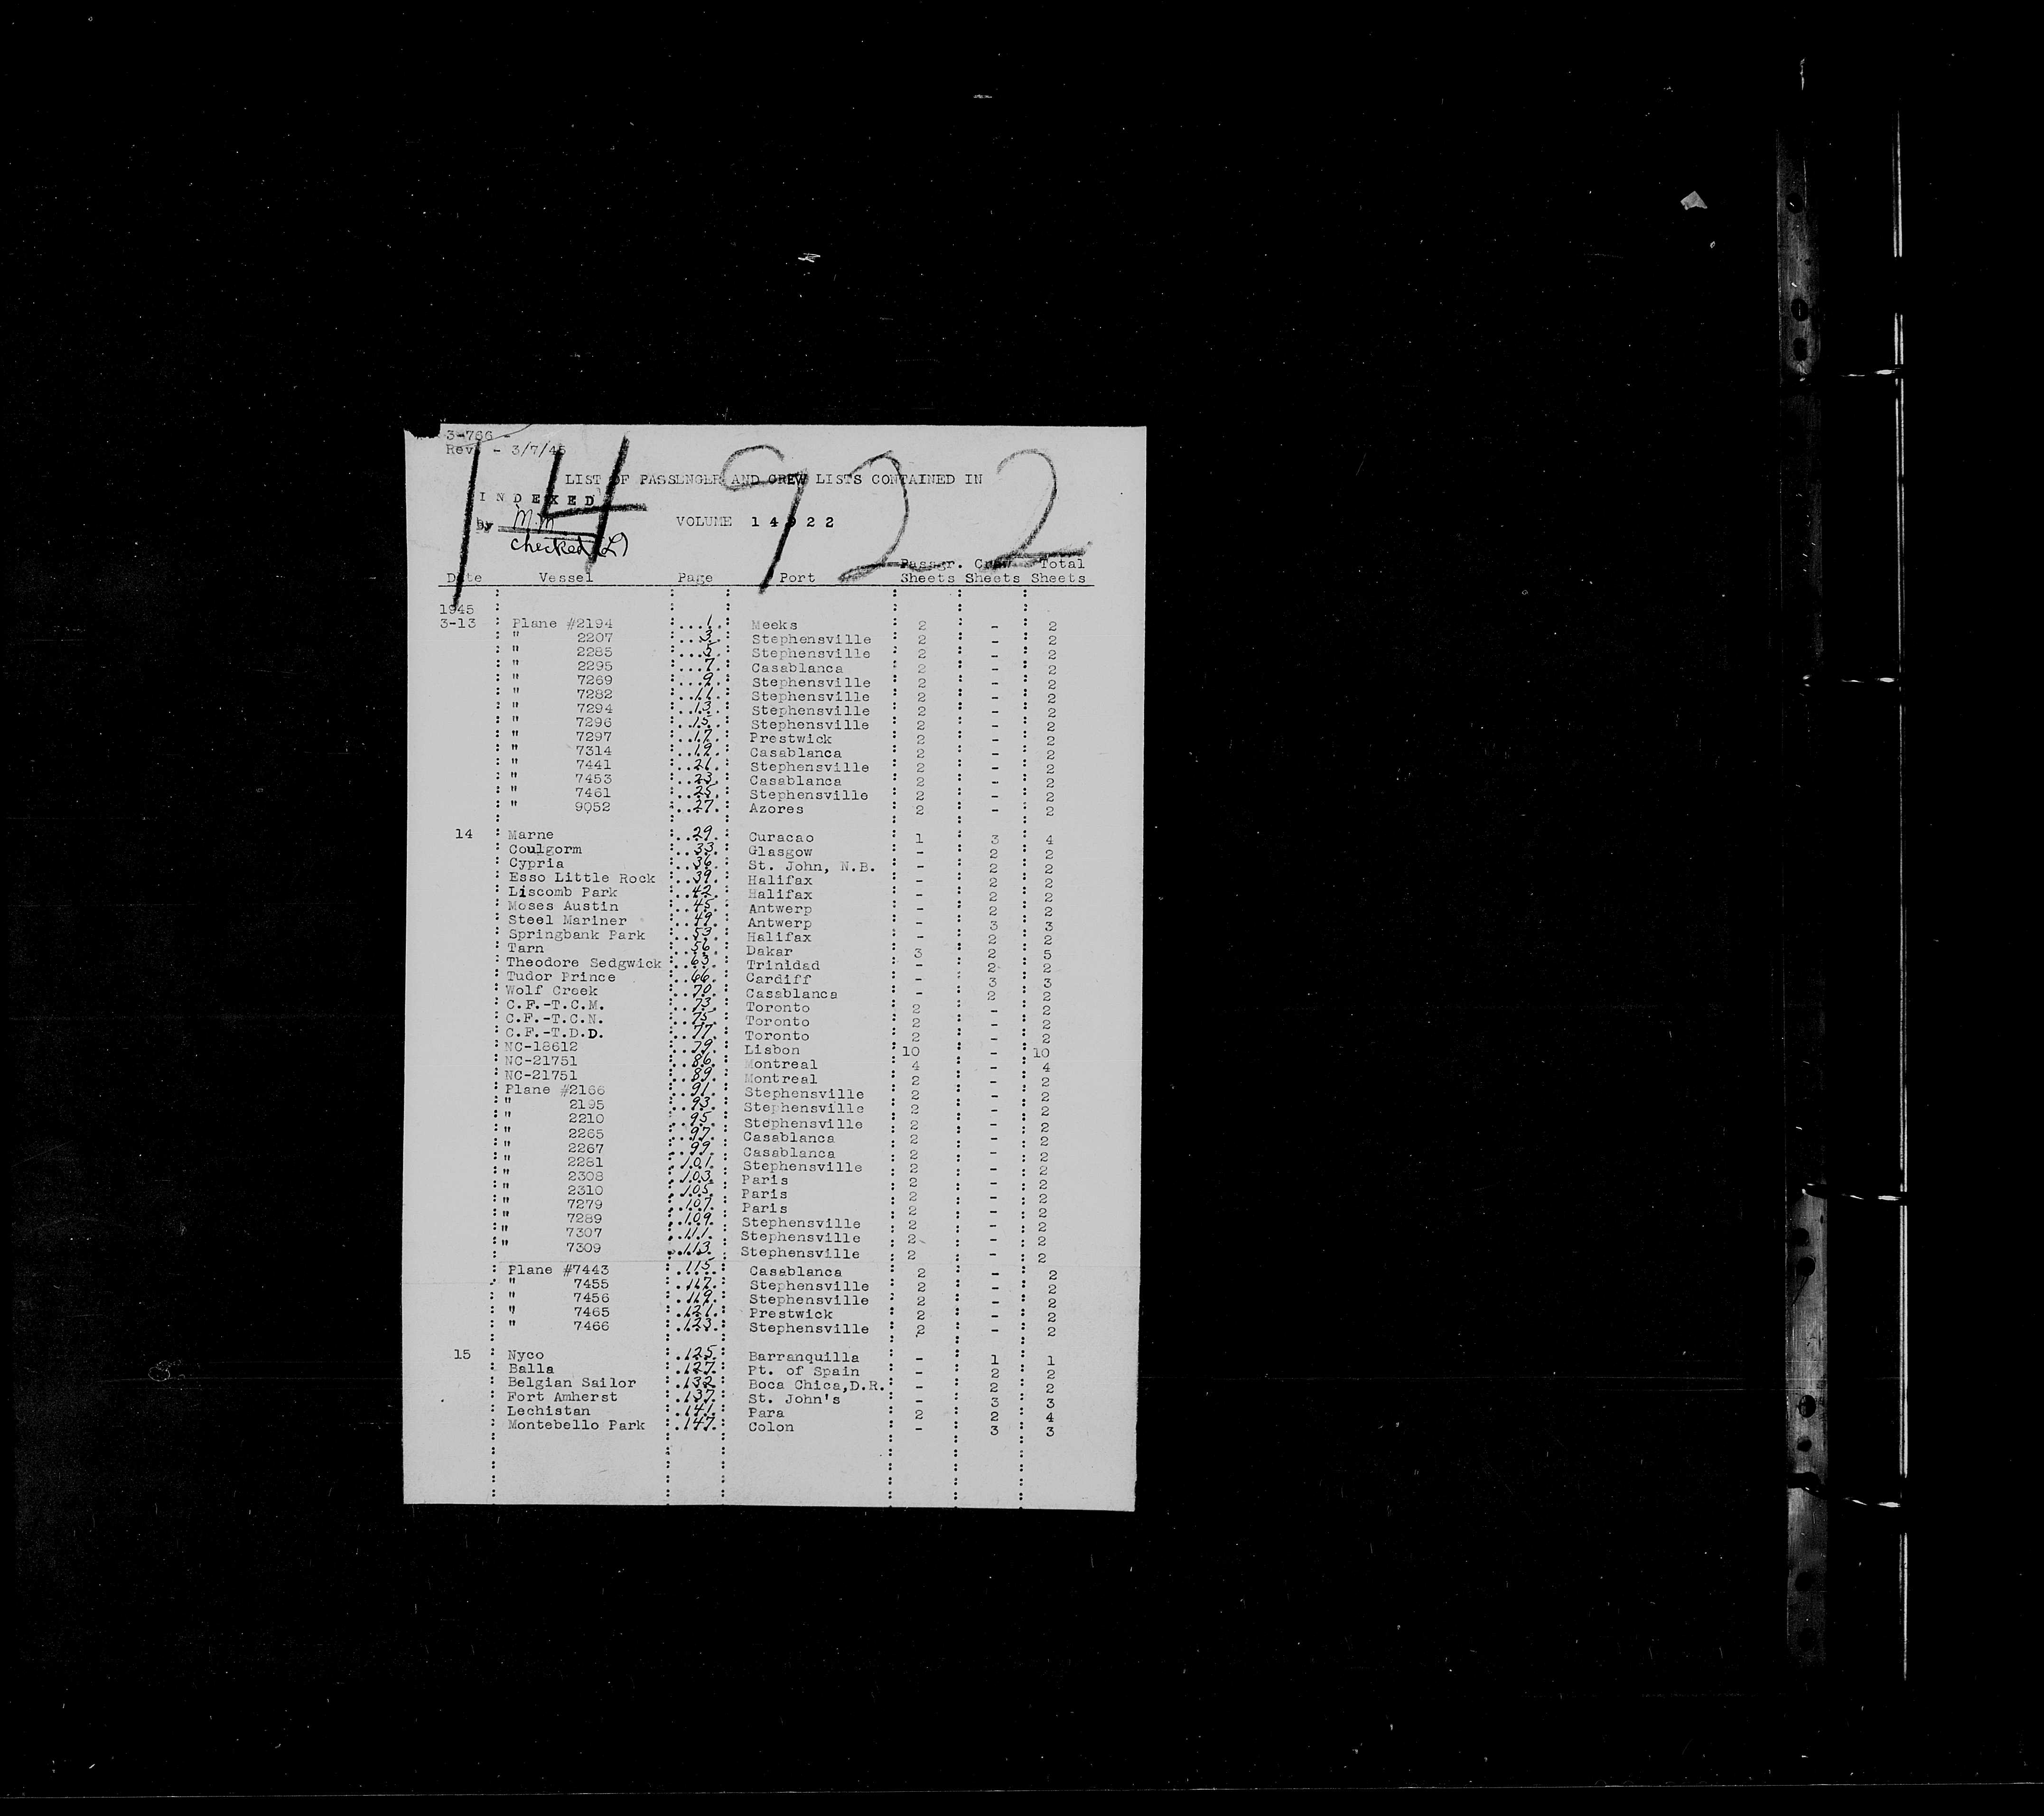 3-766 -
Rev. - 3/7/45
14922
LIST OF PASSENGER AND CREW LISTS CONTAINED IN
INDEXED
by M.M
VOLUME 14922
checked (L)
Date Vessel Page Port Passgr. Sheets Crew Sheets Total Sheets
1945
3-13 Plane #2194 1 Meeks 2 - 2
" 2207 3 Stephensville 2 - 2
" 2285 5 Stephensville 2 - 2
" 2295 7 Casablanca 2 - 2
" 7269 9 Stephensville 2 - 2
" 7282 11 Stephensville 2 - 2
" 7294 13 Stephensville 2 - 2
" 7296 15 Stephensville 2 - 2
" 7297 17 Prestwick 2 - 2
" 7314 19 Casablanca 2 - 2
" 7441 21 Stephensville 2 - 2
" 7453 23 Casablanca 2 - 2
" 7461 25 Stephensville 2 - 2
" 9052 27 Azores 2 - 2
14 Marne 29 Curacao 1 3 4
Coulgorm 33 Glasgow - 2 2
Cypria 36 St. John, N.B. - 2 2
Esso Little Rock 39 Halifax - 2 2
Liscomb Park 42 Halifax - 2 2
Moses Austin 45 Antwerp - 2 2
Steel Mariner 49 Antwerp - 3 3
Springbank Park 53 Halifax - 2 2
Tarn 56 Dakar 3 2 5
Theodore Sedgwick 63 Trinidad - 2 2
Tudor Prince 66 Cardiff - 3 3
Wolf Creek 70 Casablanca - 2 2
C.F.-T.C.M. 73 Toronto 2 - 2
C.F.-T.C.N. 75 Toronto 2 - 2
C.F.-T.D.D. 77 Toronto 2 - 2
NC-18612 79 Lisbon 10 - 10
NC-21751 86 Montreal 4 - 4
NC-21751 89 Montreal 2 - 2
Plane #2166 91 Stephensville 2 - 2
" 2195 93 Stephensville 2 - 2
" 2210 95 Stephensville 2 - 2
" 2265 97 Casablanca 2 - 2
" 2267 99 Casablanca 2 - 2
" 2281 101 Stephensville 2 - 2
" 2308 103 Paris 2 - 2
" 2310 105 Paris 2 - 2
" 7279 107 Paris 2 - 2
" 7289 109 Stephensville 2 - 2
" 7307 111 Stephensville 2 - 2
" 7309 113 Stephensville 2 - 2
Plane #7443 115 Casablanca 2 - 2
" 7455 117 Stephensville 2 - 2
" 7456 119 Stephensville 2 - 2
" 7465 121 Prestwick 2 - 2
" 7466 123 Stephensville 2 - 2
15 Nyco 125 Barranquilla - 1 1
Balla 127 Pt. of Spain - 2 2
Belgian Sailor 132 Boca Chica,D.R. - 2 2
Fort Amherst 137 St. John's - 3 3
Lechistan 141 Para 2 2 4
Montebello Park 147 Colon - 3 3